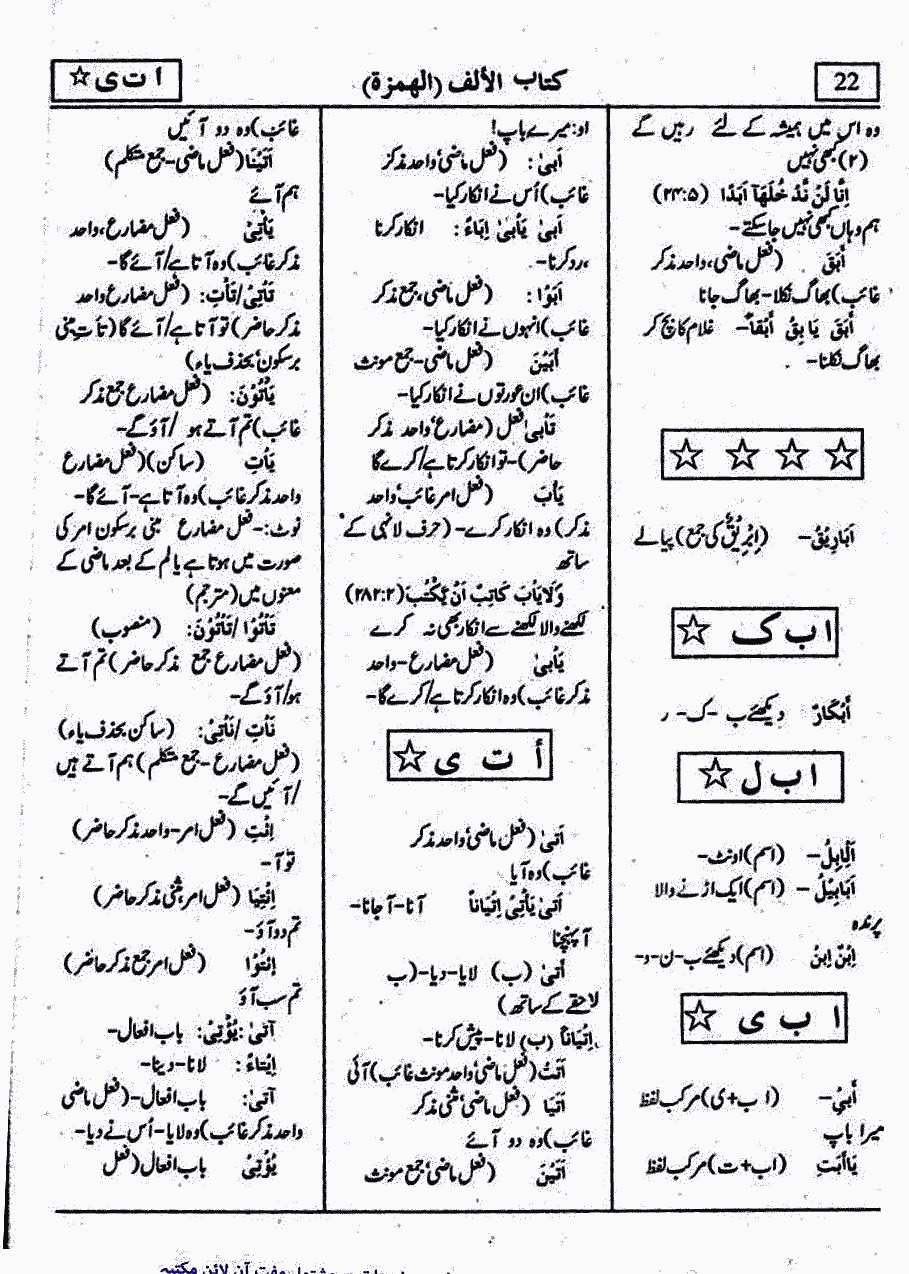 22
كتاب الألف (الهمزة)
ا ت ی ☆
وہ اس میں ہمیشہ کے لئے رہیں گے
(۲) کبھی نہیں
اِنَّا لَنْ نَّدْخُلَهَآ اَبَدًا (۲۴:۵)
ہم وہاں کبھی نہیں جاسکتے-
أَبَقَ (فعل ماضی، واحد مذکر
غائب) بھاگ نکلا- بھاگ جانا
أَبَقَ يَابِقُ أَبْقاً- غلام کا بچ کر
بھاگ نکلنا-
☆ ☆ ☆ ☆
اَبَارِيْقُ- (اِبْرِيْقٌ کی جمع) پیالے
ا ب ک ☆
أَبْكَارٌ دیکھئے ب-ک-ر
ا ب ل ☆
اَلْإِبِلُ- (اسم) اونٹ-
اَبَابِيْلُ- (اسم) ایک اڑنے والا
پرندہ
اِبْنٌ اِبنُ (اسم) دیکھئے ب-ن-و-
ا ب ی ☆
أَبِيْ- (ا ب+ی) مرکب لفظ
میرا باپ
يَاأَبَتِ (اب+ت) مرکب لفظ
او: میرے باپ!
أَبىٰ: (فعل ماضی، واحد مذکر
غائب) اُس نے انکار کیا-
أَبىٰ يَأْبىٰ اِبَاءً: انکار کرنا
،رد کرنا-
اَبَوْا: (فعل ماضی، جمع مذکر
غائب) انہوں نے انکار کیا-
أَبَيْنَ (فعل ماضی-جمع مونث
غائب) ان عورتوں نے انکار کیا-
تَأبىٰ فعل (مضارع، واحد مذکر
حاضر)- تو انکار کرتا ہے/کرے گا
يَأْبَ (فعل امر غائب، واحد
مذکر) وہ انکار کرے- (حرف لانہی کے
ساتھ
وَلَايَأْبَ كَاتِبٌ اَنْ يَّكْتُبَ (۲۸۲:۲)
لکھنے والا لکھنے سے انکار بھی نہ کرے
يَأْبىٰ (فعل مضارع-واحد
مذکر غائب) وہ انکار کرتا ہے/کرے گا-
أ ت ی ☆
اَتىٰ (فعل ماضی، واحد مذکر
غائب) وہ آیا
اَتىٰ يَأْتِيْ اِتْيَاناً آنا- آجانا-
آ پہنچنا
أتىٰ (ب) لایا- دیا- (ب
لاحقے کے ساتھ)
اِتْيَاناً (ب) لانا- پیش کرنا-
اَتَتْ (فعل ماضی، واحد مونث غائب) آئی
اَتَيَا (فعل ماضی، مثنیٰ مذکر
غائب) وہ دو آئے
اَتَيْنَ (فعل ماضی، جمع مونث
غائب) وہ دو آئیں
اَتَيْنَا (فعل ماضی-جمع متکلم)
ہم آئے
يَأْتِيْ (فعل مضارع، واحد
مذکر غائب) وہ آتا ہے/آئے گا-
تَأتِيْ/تَأْتِ: (فعل مضارع واحد
مذکر حاضر) تو آتا ہے/آئے گا (تَأْتِ مبنی
برسکون، بحذف یاء)
يَأْتُوْنَ: (فعل مضارع جمع مذکر
غائب) تم آتے ہو /آؤ گے-
يَأْتِ (ساکن) (فعل مضارع
واحد مذکر غائب) وہ آتا ہے- آئے گا-
نوٹ:- فعل مضارع مبنی برسکون امر کی
صورت میں ہوتا ہے یا لم کے بعد ماضی کے
معنوں میں (مترجم)
تَأْتُوْا/تَأْتُوْنَ: (منصوب)
(فعل مضارع جمع مذکر حاضر) تم آتے
ہو/آؤ گے-
نَأْتِ/نَأْتِيْ: (ساکن بحذف یاء)
(فعل مضارع- جمع متکلم) ہم آتے ہیں
/آئیں گے-
اِئْتِ (فعل امر- واحد مذکر حاضر)
تو آ-
اِئْتِيَا (فعل امر مثنیٰ مذکر حاضر)
تم دو آؤ-
اِئْتُوْا (فعل امر جمع مذکر حاضر)
تم سب آؤ
آتىٰ: يُؤْتِيْ: باب افعال-
اِيْتَاءً: لانا- دینا-
آتىٰ: باب افعال- (فعل ماضی
واحد مذکر غائب) وہ لایا- اُس نے دیا-
يُؤْتِيْ باب افعال (فعل